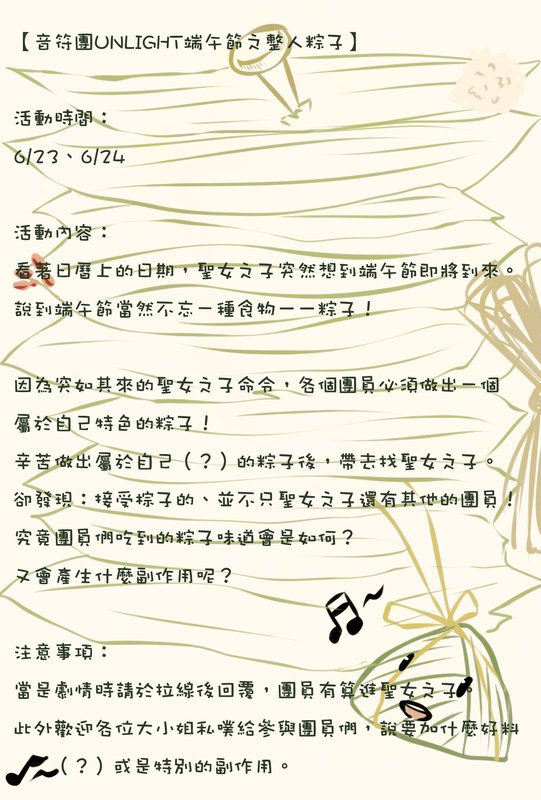 【音符團UNLIGHT端午節之整人粽子】
活動時間：
6/23、6/24
活動內容：
看著日曆上的日期，聖女之子突然想到端午節即將到來。
說到端午節當然不忘一種食物——粽子！
因為突如其來的聖女之子命令，各個團員必須做出一個
屬於自己特色的粽子！
辛苦做出屬於自己（？）的粽子後，帶去找聖女之子。
卻發現：接受粽子的、並不只聖女之子還有其他的團員！
究竟團員們吃到的粽子味道會是如何？
又會產生什麼副作用呢？
注意事項：
當是劇情時請於拉線後回覆，團員有算進聖女之子。
此外歡迎各位大小姐私噗給參與團員們，說要加什麼好料
（？）或是特別的副作用。